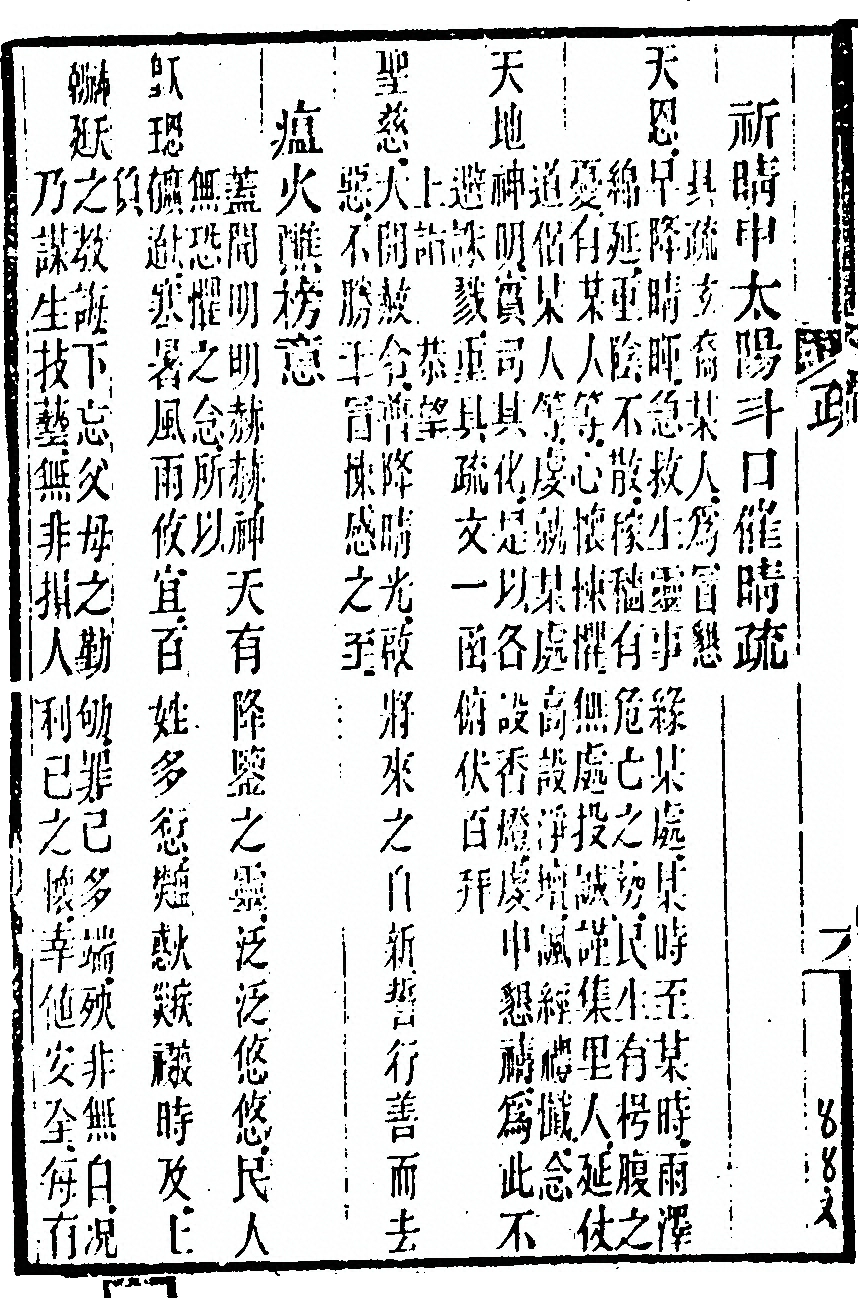 祈晴申太陽斗口催晴疏
具疏玄裔某人爲冒懇
天恩早降晴暉急救生靈事緣某處某時至某時雨澤
綿延重陰不散稼穡有危亡之勢民生有枵腹之
憂有某人等心懷悚懼無處投誠謹集里人延仗
道侶某人等虔就某處高設淨壇諷經禮懺念
天地神明實司其化是以各設香燈虔申懇禱爲此不
避誅戮重具疏文一函俯伏百拜
上詣 恭望
聖慈大開赦令普降晴光啟將來之自新誓行善而去
惡不勝干冒悚感之至
瘟火醮榜意
蓋聞明明赫赫神天有降鑒之靈泛泛悠悠民人
無恐懼之念所以
寒暑風雨攸宜百姓多愆時及上
負
之教誨下忘父母之勤劬罪已多端殃非無自況
乃謀生技藝無非損人利己之懷幸他安全每有
疏
六
88文